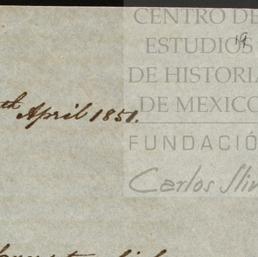 CENTRO DE
ESTUDIOS
19
DE HISTORIA
DE MEXICO
th April 1851.
FUNDACIÓ
Carlos Slim